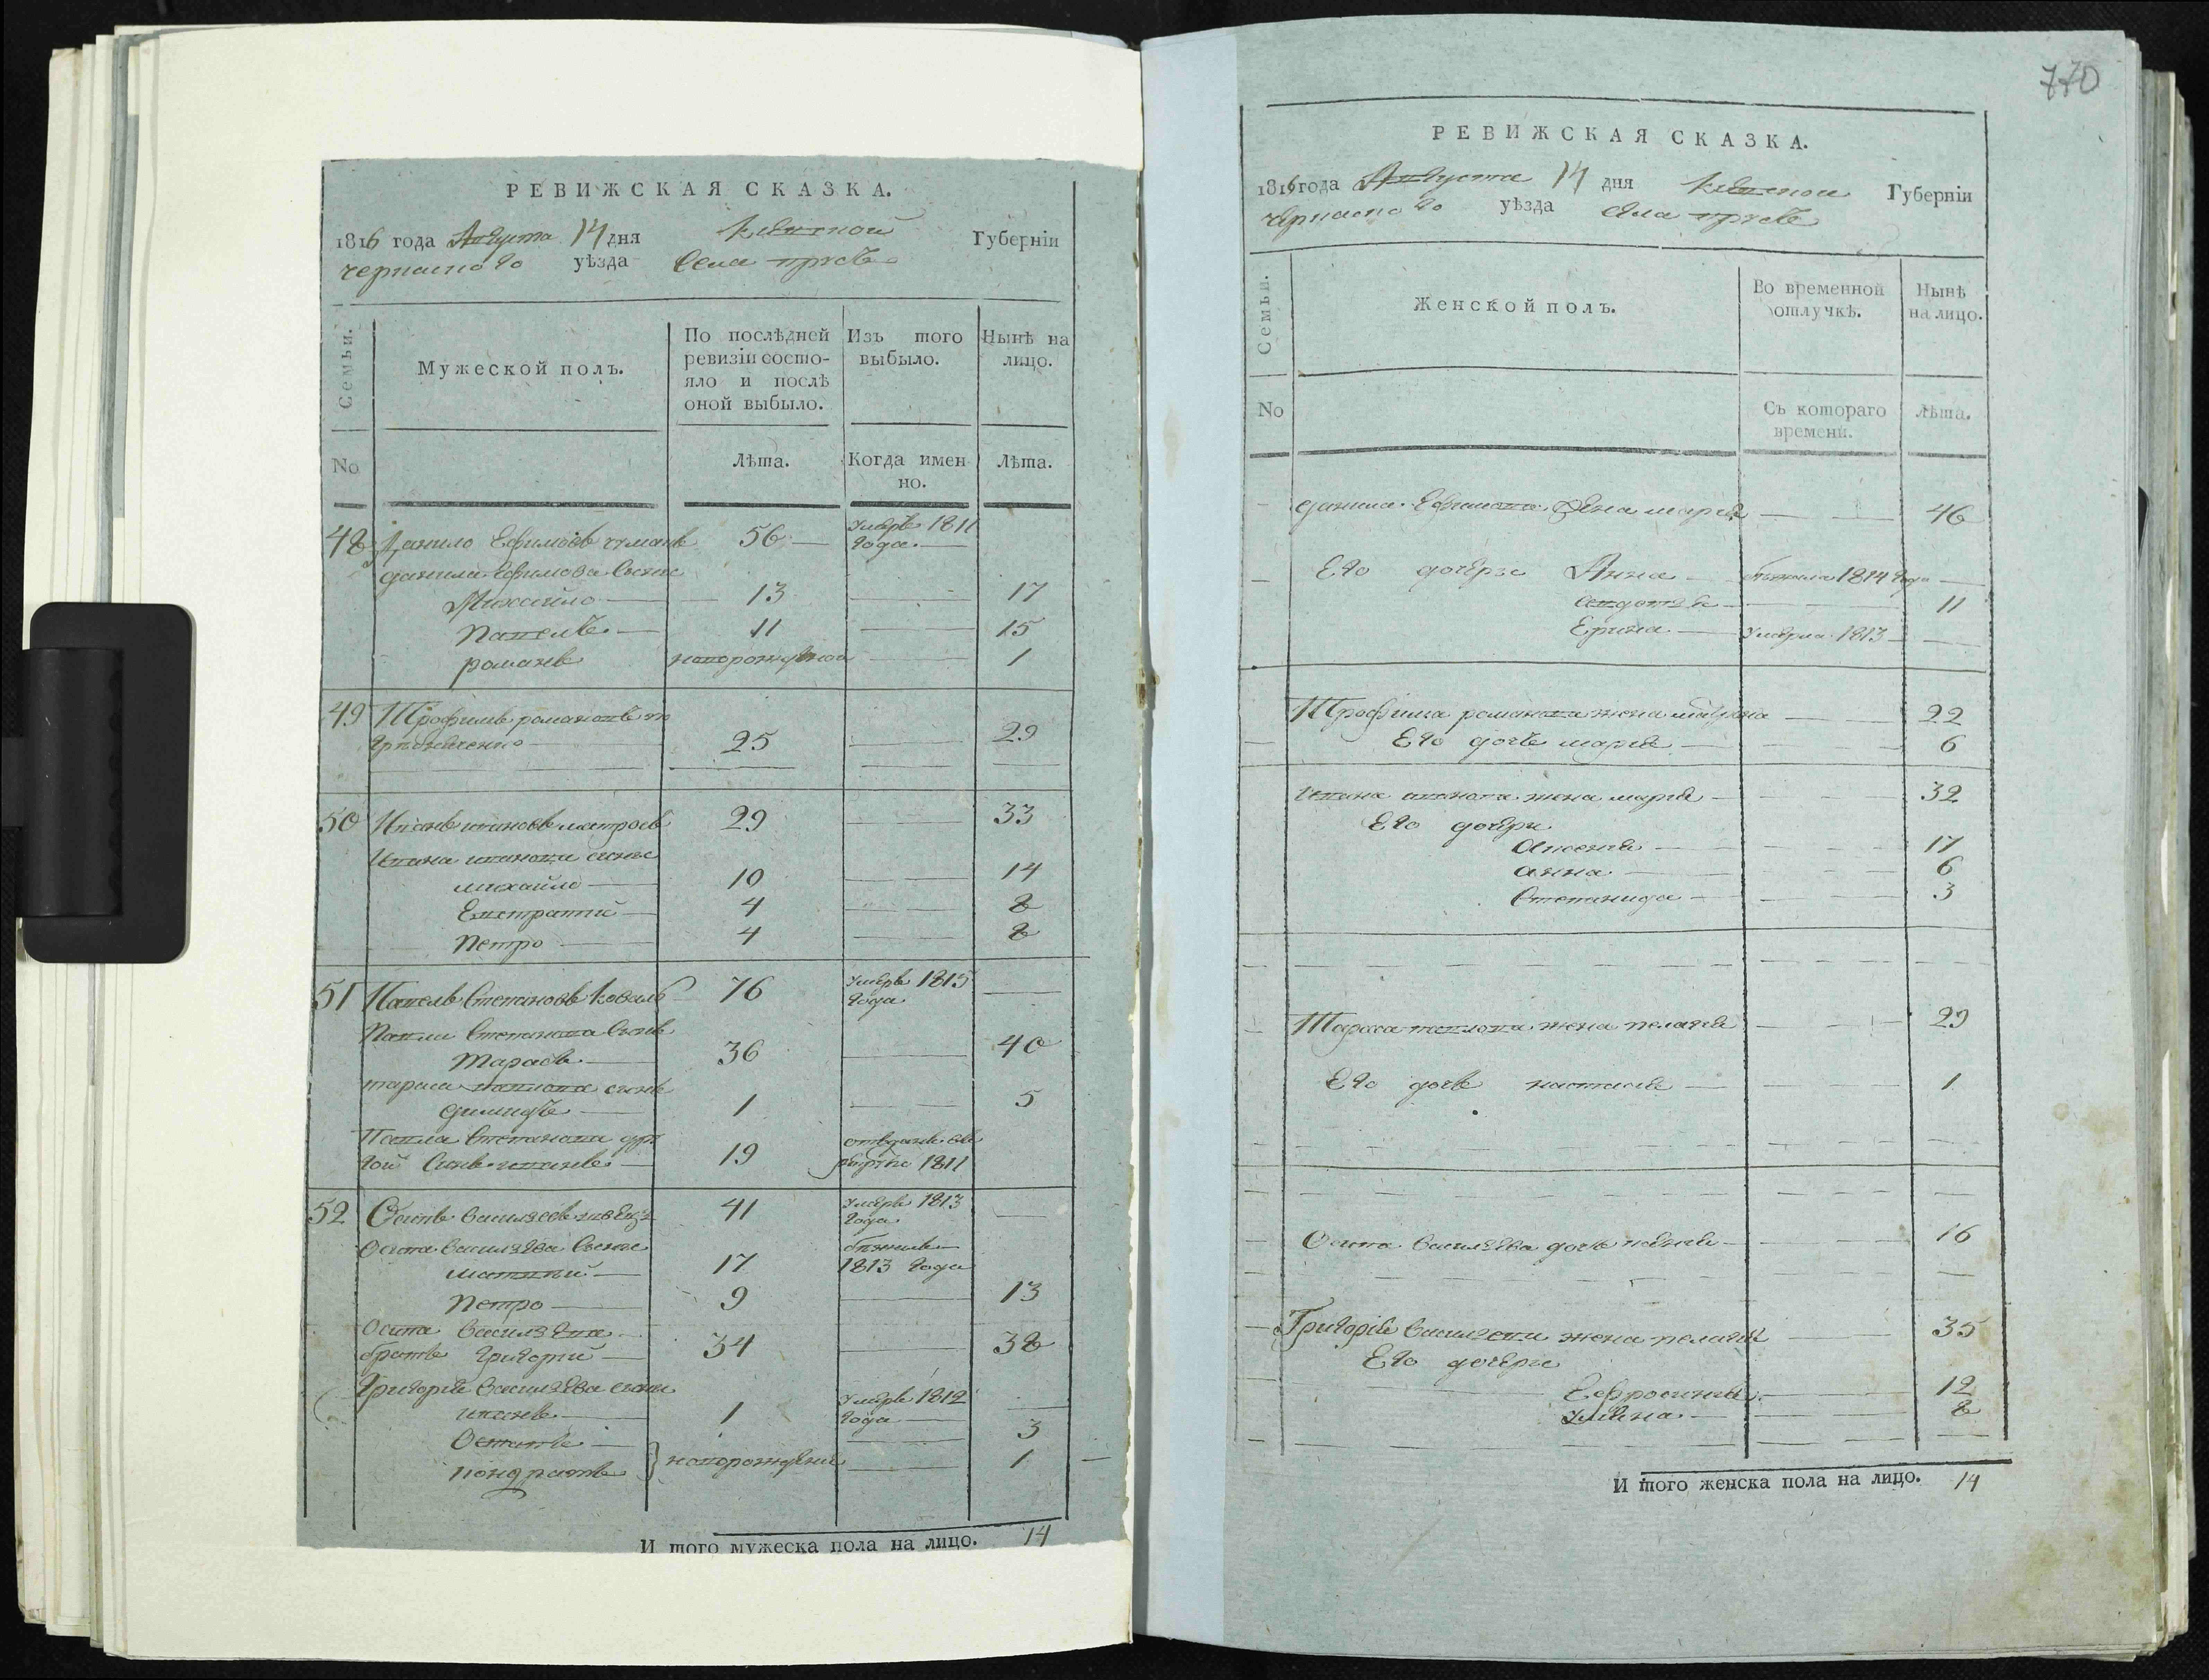 РЕВИЖСКАЯ СКАЗКА.
1816 года Августа 14 дня Киевской Губерніи
черкаского уѣзда Села прусъ
Семьи.
Мужеской полъ.
По послѣдней ревизіи состо-
яло и послѣ
оной выбыло.
Изъ того
выбыло.
Нынѣ на
лицо.
No
Лѣта.
Когда имен-
но.
Лѣта.
48 Данило Ефимовъ 56 умеръ 1811
года
данила Ефимова Сыны
Михайло 13 17
Павелъ 11 15
романъ новорожденой 1
49 Трофимъ романовъ
25 29
50 Иванъ ивановъ 29 33
Ивана иванова сыны
михайло 10 14
Евстратий 4 8
Петро 4 8
51 Павелъ Степановъ Коваль 76 умеръ 1815
года
Павла Степанова Сынъ
Тарасъ 36 40
тараса павлова сынъ
димидъ 1 5
Павла Степанова дру
гой Сынъ иванъ 19 отданъ въ
рекруты 1811
52 Осипъ Васильевъ 41 умеръ 1813
года
Осипа Васильева Сыны
матвий 17 бежалъ
1813 года
Петро 9 13
Осипа Васильева
братъ Григорий 34 38
Григория Васильева сыны
иванъ 1 умеръ 1812
года
Остапъ 3
кондратъ новорождены 1
И того мужеска пола на лицо. 14
770
РЕВИЖСКАЯ СКАЗКА.
1816 года Августа 14 дня Киевской Губерніи
черкаского уѣзда села прусъ
Семьи.
Женской полъ.
Во временной
отлучкѣ.
Нынѣ
на лицо.
No
Съ котораго
времени.
Лѣта.
данила Ефимова Жена марья 46
Его дочери Анна бежала 1814 года
явдотья 11
Ерина умерла 1813
Трофима романова жена 22
Его дочь марья 6
Ивана иванова жена марья 32
Его дочери
Аксенья 17
анна 6
Степанида 3
Тараса павлова жена пелагея 29
Его дочь настасья 1
Осипа Васильева дочь 16
Григорія Васильева жена пелагея 35
Его дочери
Ефросинья 12
ульяна 8
И того женска пола на лицо. 14